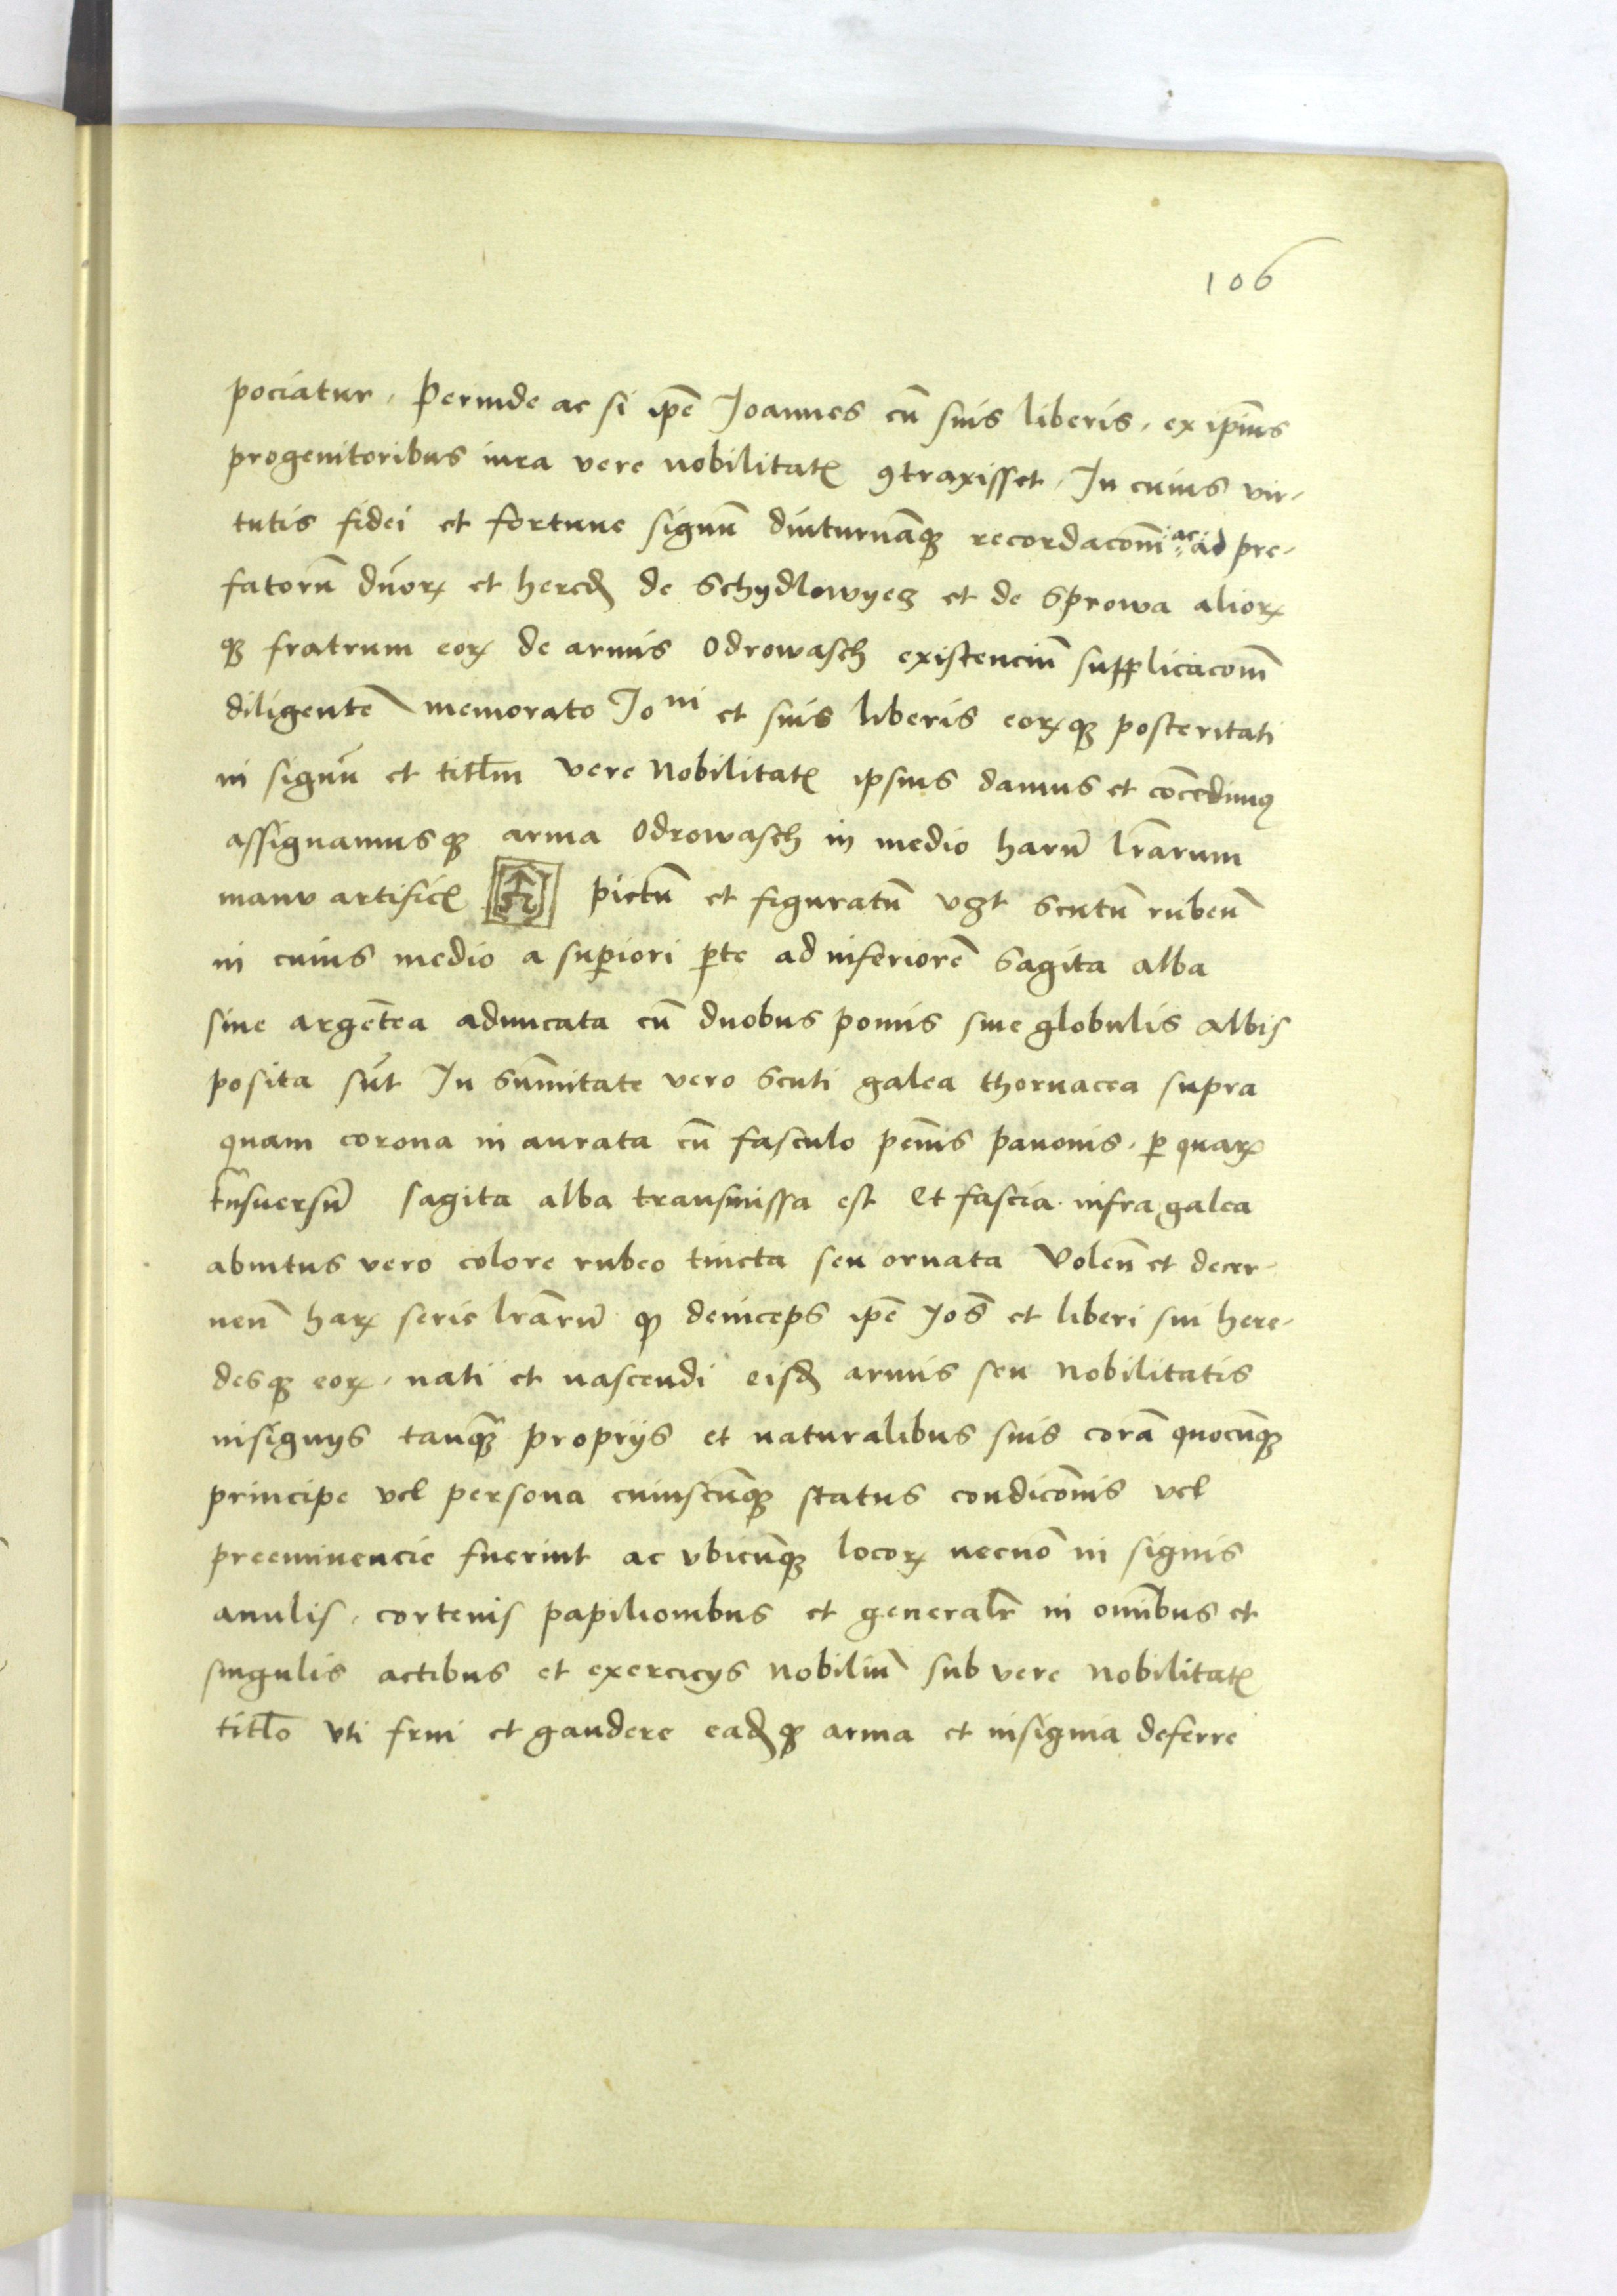 106
pociatur, Perinde ac si ip̄e Joannes cū suis liberis, ex ip̄ius
progenitoribus iura vere nobilitatꝭ ꝯtraxisset, In cuius vir-
tutis fidei et fortune signū diuturnāqꝫ recordacōm̄ ac ad pre-
fatorū dn̄orꝝ et hered̄ de Schydlowyecz et de Sprowa aliorꝝ
qꝫ fratrum eorꝝ de armis Odrowasch existenciū supplicacōm̄
diligentē memorato Joⁿⁱ et suis liberis eorꝝqꝫ posteritati
in signū et titl̄m vere Nobilitatꝭ ipsius damus et cōcedimꝰ
assignamusqꝫ arma Odrowasch in medio harū lr̄arum
manu artificꝭ pictū et figuratū vꝫt Scutū rubeū
in cuius medio a sup̄iori p̄te ad inferiorē Sagita alba
siue argētea aduncata cū duobus pomis siue globulis albis
posita sūt In Sūmitate vero Scuti galea thornacea supra
quam corona in aurata cū fasculo pēnis pauonis, ꝑ quarꝝ
trn̄suersū sagita alba transmissa est Et fascia infra galea
abintus vero colore rubeo tincta seu ornata Volen̄ et decer-
nen̄ harꝝ serie lr̄arū qꝫ deinceps ip̄e Joēs et liberi sui here-
desqꝫ eorꝝ, nati et nascendi eisd̄ armis seu Nobilitatis
insignijs tanqꝫ proprijs et naturalibus suis corā quocūqꝫ
principe vel persona cuiuscūqꝫ status condicōnis vel
preeminencie fuerint ac vbicūqꝫ locorꝝ necnō in signis
anulis, cortenis papilionibus et generalr̄ in omībus et
singulis actibus et exercicijs Nobiliū sub vere Nobilitatꝭ
titl̄o vti frui et gaudere ead̄qꝫ arma et insignia deferre